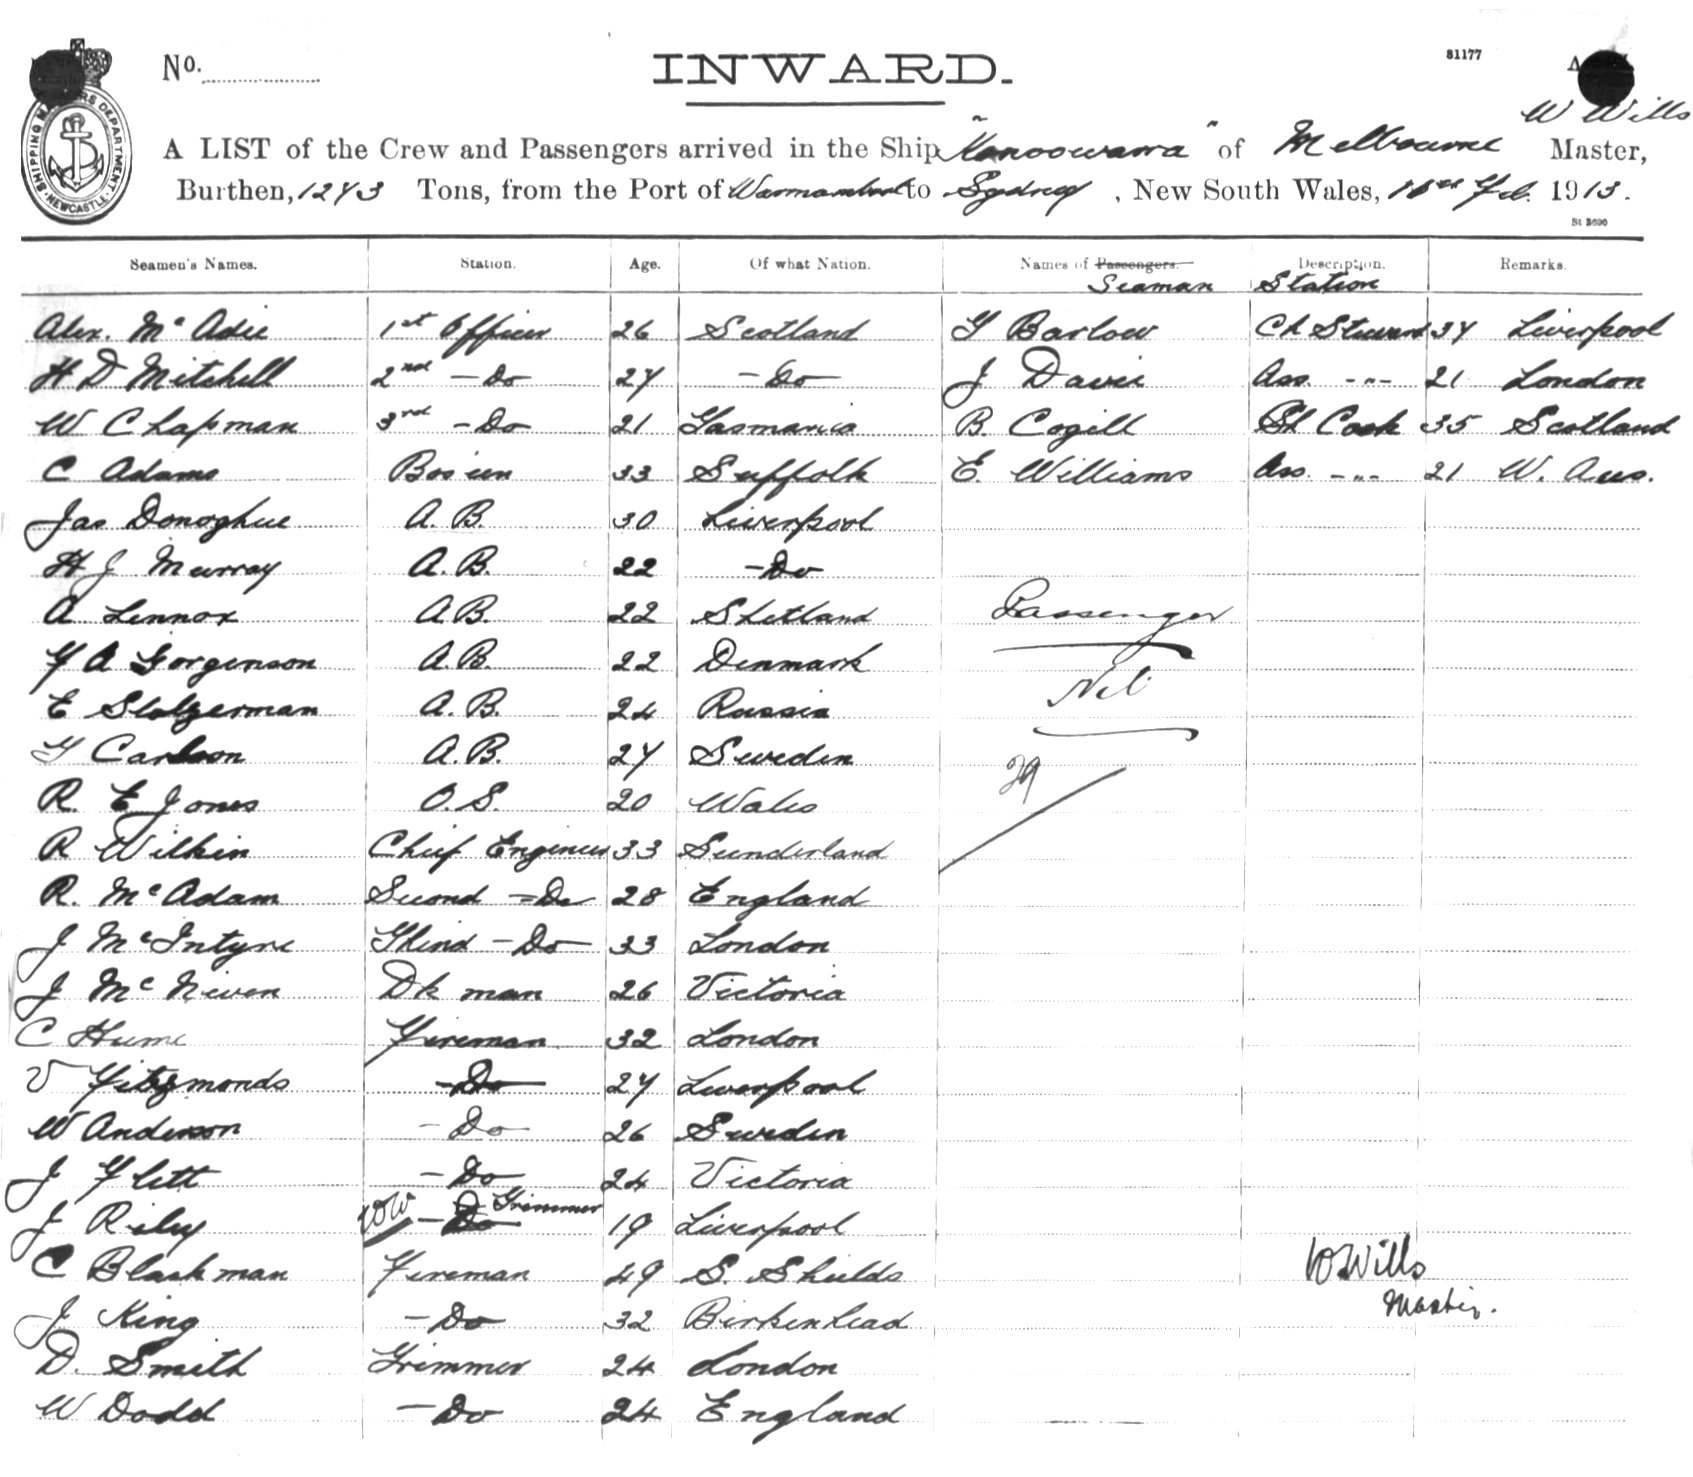 No.
INWARD.
81177
SHIPPING MASTERS DEPARTMENT. NEWCASTLE
W Wills
A LIST of the Crew and Passengers arrived in the Ship "Kanoowarra" of Melbourne Master,
Burthen, 1243 Tons, from the Port of to Sydney, New South Wales, Feb. 1913.
St 3690
Seamen's Names. Station. Age. Of what Nation. Names of Passengers. Description. Remarks.
Seaman Station
Alex. McAdie 1st Officer 26 Scotland Barlow Ch Steward 34 Liverpool
H D Mitchell 2nd - Do 27 - Do J Davis Ass. -"- 21 London
W Chapman 3rd - Do 21 Tasmania B. Cogill Sh Cook 35 Scotland
C Adams Bos'un 33 Suffolk E. Williams Ass. -"- 21 W. Aus.
Jas Donoghue A. B. 30 Liverpool
H J Murray A. B. 22 - Do
A Lennox A. B. 22 Shetland Passenger
F A Gorgenson A. B. 22 Denmark
E Stolzerman A. B. 24 Russia Nil
Carlson A. B. 27 Sweden
29
R. E Jones O. S. 20 Wales
R Wilkin Chief Engineer 33 Sunderland
R. McAdam Second - Do 28 England
J McIntyre Third - Do 33 London
J McNiven Dk man 26 Victoria
C Hume Fireman 32 London
V Fitzmonds - Do 27 Liverpool
W Anderson - Do 26 Sweden
J Flett - Do 24 Victoria
J Riley WW - Do Trimmer 19 Liverpool
C Blackman Fireman 49 S. Shields W Wills
J King - Do 32 Birkenhead Master.
D. Smith Trimmer 24 London
W Dodd - Do 24 England